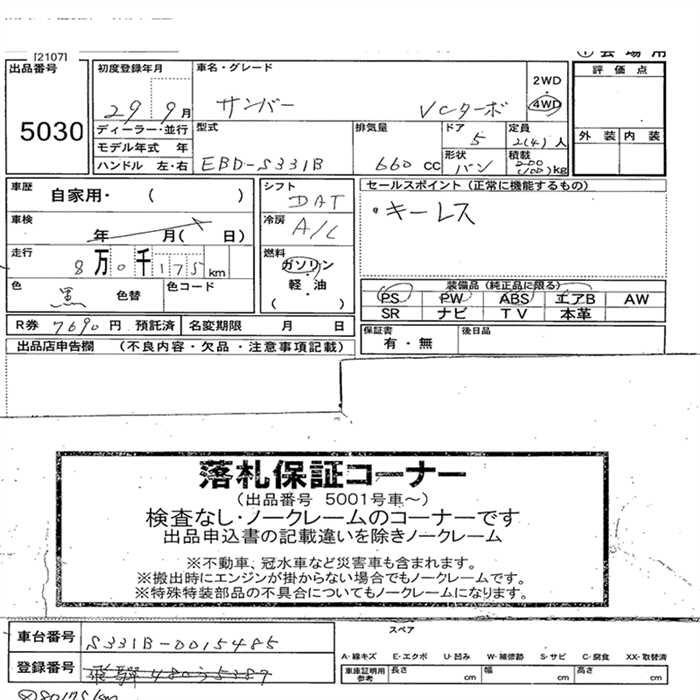 [2107]
出品番号
5030
初度登録年月
29 9月
ディーラー・並行
モデル年式 年
ハンドル 左・右
車名・グレード
サンバー VCターボ
2WD
・
4WD
型式
EBD-S331B
排気量
660 cc
ドア
5
形状
バン
定員
2(4)人
積載
200
(100)kg
① 会場用
評価点
外装 内装
車歴 自家用・( )
車検 年 月( 日)
走行 8万0千175km
色 黒 色替
色コード
シフト DAT
冷房 A/C
燃料
ガソリン
軽・油
( )
セールスポイント(正常に機能するもの)
・キーレス
装備品(純正品に限る)
PS PW ABS エアB AW
SR ナビ TV 本革
R券 7690円 預託済 名変期限 月 日
保証書
有・無
後日品
出品店申告欄 (不良内容・欠品・注意事項記載)
落札保証コーナー
(出品番号 5001号車~)
検査なし・ノークレームのコーナーです
出品申込書の記載違いを除きノークレーム
※不動車、冠水車など災害車も含まれます。
※搬出時にエンジンが掛からない場合でもノークレームです。
※特殊特装部品の不具合についてもノークレームになります。
車台番号 S331B-0015485
登録番号 飛騨 480う5387
スペア
A-線キズ E-エクボ U-凹み W-補修跡 S-サビ C-腐食 XX-取替済
車庫証明用
参考
長さ cm 幅 cm 高さ cm
⊗80175km